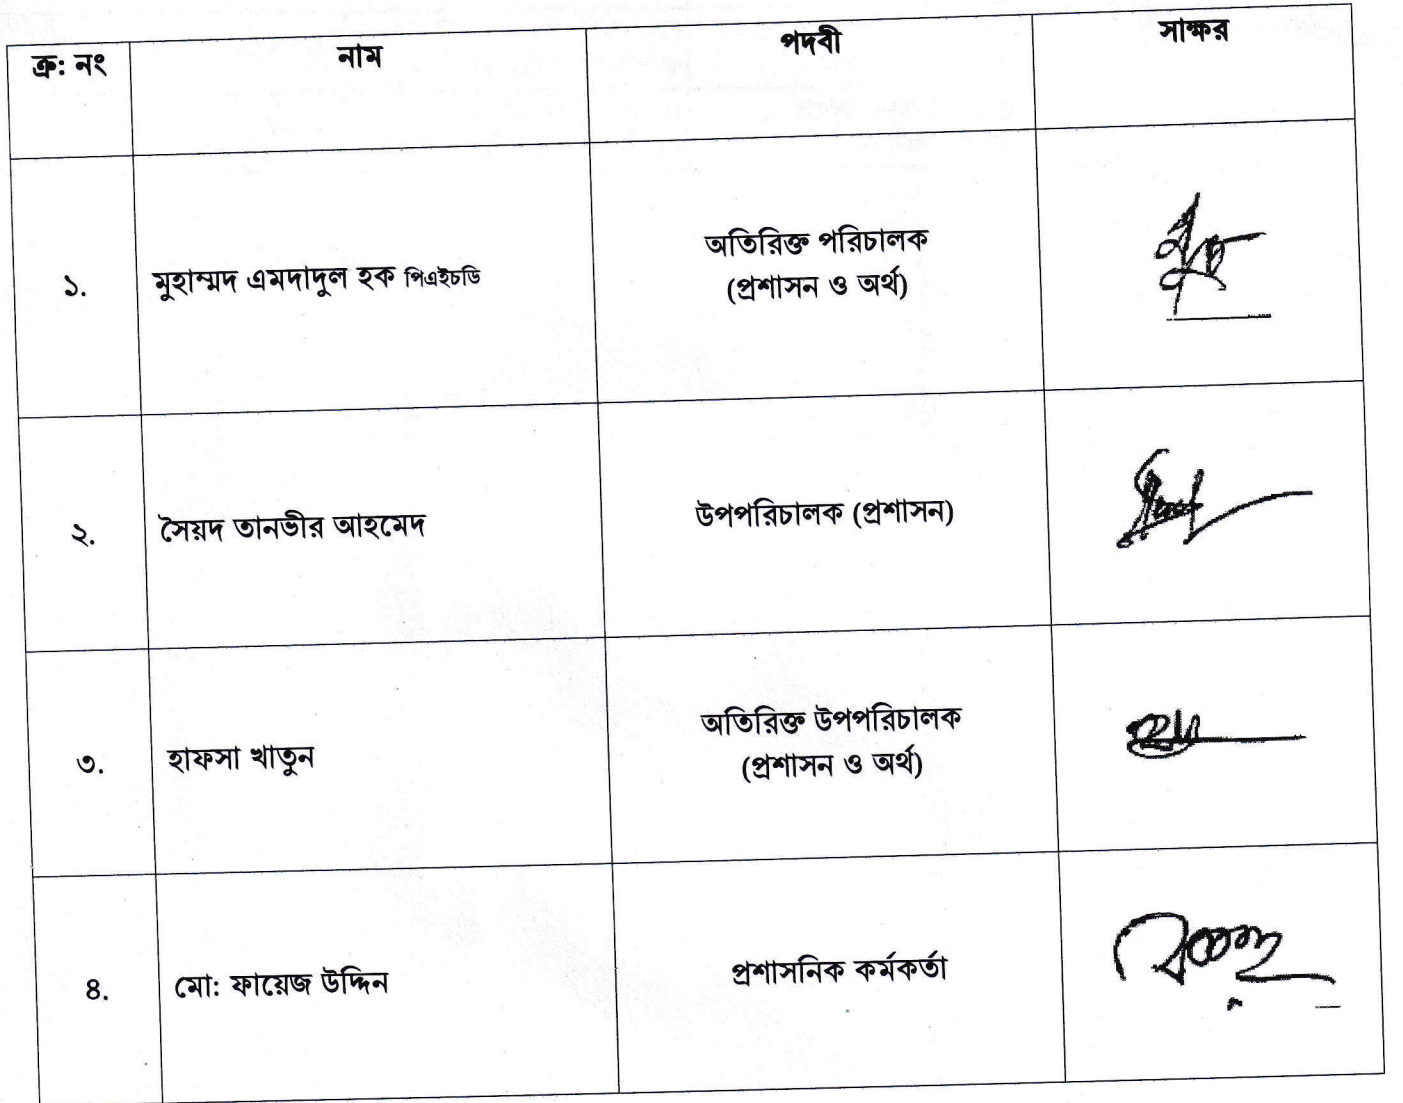 ক্র: নং নাম পদবী সাক্ষর
১. মুহাম্মদ এমদাদুল হক পিএইচডি অতিরিক্ত পরিচালক
(প্রশাসন ও অর্থ)
২. সৈয়দ তানভীর আহমেদ উপপরিচালক (প্রশাসন)
৩. হাফসা খাতুন অতিরিক্ত উপপরিচালক
(প্রশাসন ও অর্থ)
৪. মো: ফায়েজ উদ্দিন প্রশাসনিক কর্মকর্তা